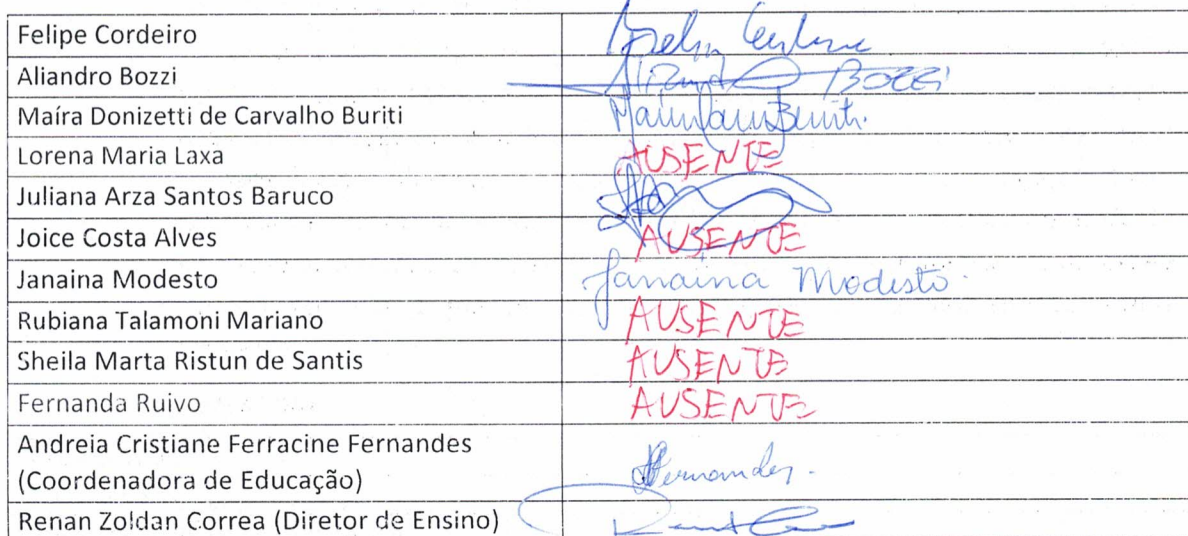 Felipe Cordeiro
Aliandro Bozzi BOZZI
Maíra Donizetti de Carvalho Buriti
Lorena Maria Laxa AUSENTE
Juliana Arza Santos Baruco
Joice Costa Alves AUSENTE
Janaina Modesto Janaina Modesto
Rubiana Talamoni Mariano AUSENTE
Sheila Marta Ristun de Santis AUSENTE
Fernanda Ruivo AUSENTE
Andreia Cristiane Ferracine Fernandes
(Coordenadora de Educação) Fernandes
Renan Zoldan Correa (Diretor de Ensino)